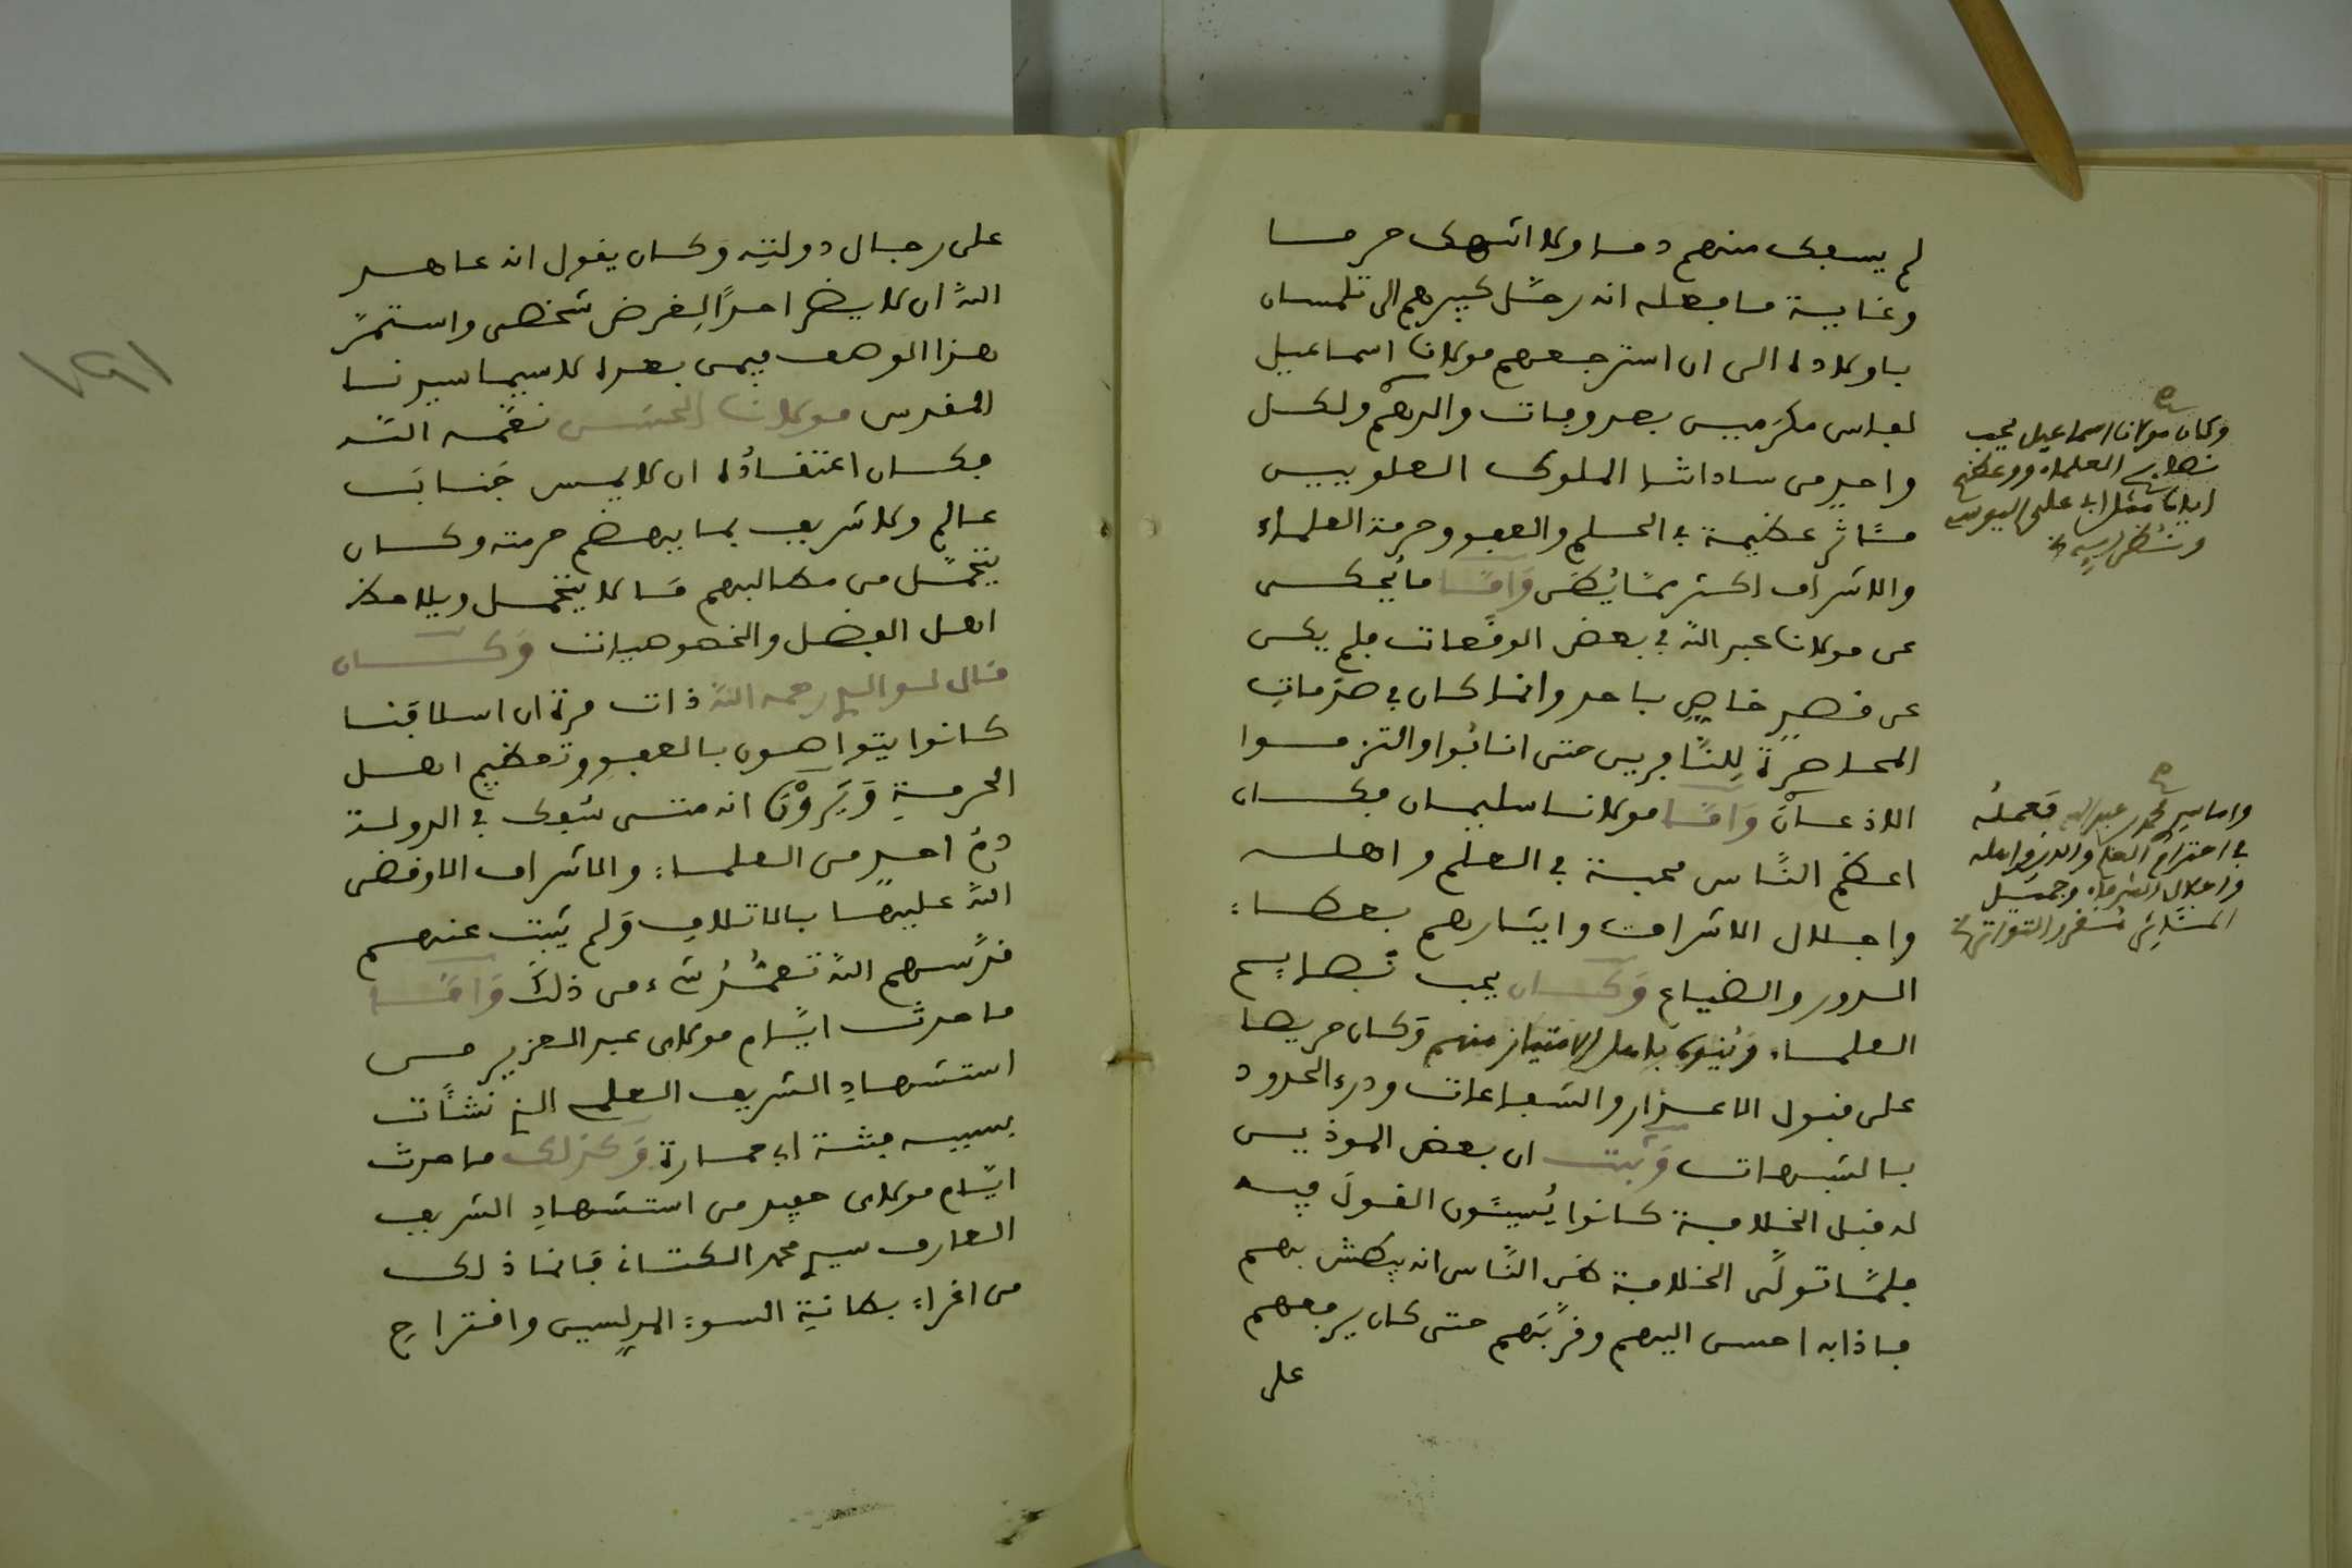 لم يسفك منهم دما ولا انتهك حرما
وغاية ما فعله انه رحّل كبيرهم الى تلمسان
باولاده الى ان استرجعهم مولانا اسماعيل
لفاس مكرميين بعد وفات والدهم ولكل
واحد من ساداتنا الملوك العلويين
مئاثر عظيمة في الحلم والعفو وحرمة العلماء
والاشراف اكثر ممّا يُظن وَامّا ما يُحكى
عن مولانا عبد الله في بعض الوقعات فلم يكن
عن قصد خاص باحد وانما كان في صدمات
المحاصرة للنّافرين حتى انابُوا والتزموا
الاذعان وَامّا مولانا سليمان فكان
اعظم النّاس محبة في العلم واهله
واجلال الاشراف وايثارهم بعطاء
الدور والضياع وَكان يحب نصايح
العلماء ويُنوه باهل الامتياز منهم وكان حريصا
على قبول الاعذار والشفاعات ودرء الحدود
بالشبهات وَثبت ان بعض الموذين
له قبل الخلافة كانوا يُسيئون القول فيه
فلمّا تولّى الخلافة ظن النّاس انه يبطش بهم
فاذا به احسن اليهم وقرّبَهم حتى كان يرفعهم
على
وكان مولانا اسماعيل يحب
نصايح العلماء ووعظهم
ايانا مثل ابي علي اليوسي
وامّا سيدي محمد بن عبد الله فعمله
في احترام العلم والدين واهله
واجلال الشرفاء وجميل
على رجال دولتِه وَكان يقول انه عاهد
اللّه ان لا يضر احدًا لِغرض شخصي واستمرّ
هذا الوصف فيمن بعده لا سيما سيدنا
المقدس مولانا الحسن نعّمه اللّه
فكان اعتقادُه ان لا يمس جَنابَ
عالم ولا شريف بما يهضم حرمته وكان
يتحمّل من مطالبهم مَا لا يتحمل ويلاحظ
اهل الفضل والخصوصيات وَكان
قال لسوالي رحمه اللّه ذات مرة ان اسلافنا
كانوا يتواصون بالعفو وتعظيم اهل
الحرمة وَيَرَوْنَ انه متى سُفك في الدولة
دمُ احد من العلماء والاشراف الا وقضى
اللّه عليها بالاتلاف وَلم يثبت عنهم
قدّسهم اللّه تعمُّدُ شيء من ذلك وَامّا
ما حدث ايّام مولاي عبد العزيز من
استشهادِ الشريف العلمي الذي نشأت
بسببه فتنة ابي حمارة وَكذلك ما حدث
ايّام مولاي حفيد من استشهادِ الشريف
العارف سيدي محمد الكتاني فانما ذلك
من اغراء بطانة السوء المدلسين واقتراح